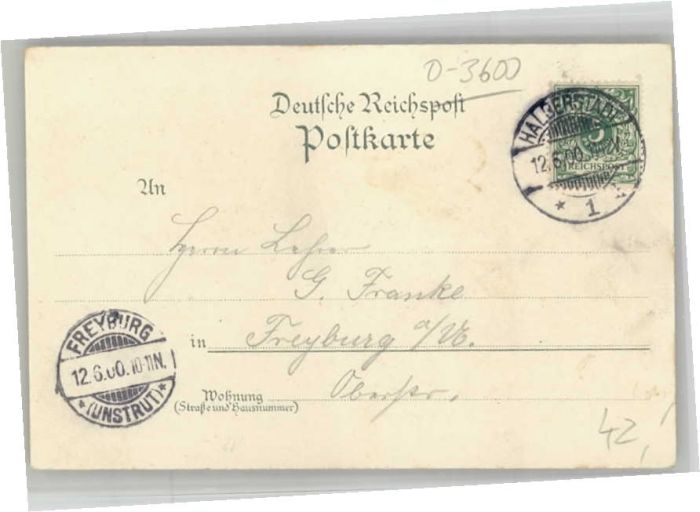 0-3600
Deutsche Reichspost
Postkarte
HALBERSTADT
12.6.00.
* 1
REICHSPOST
An
Herrn Lehrer
G. Franke
in Freyburg a/U.
Oberstr.
Wohnung
(Straße und Hausnummer)
FREYBURG
12.6.00.10-11N.
* (UNSTRUT) *
42,